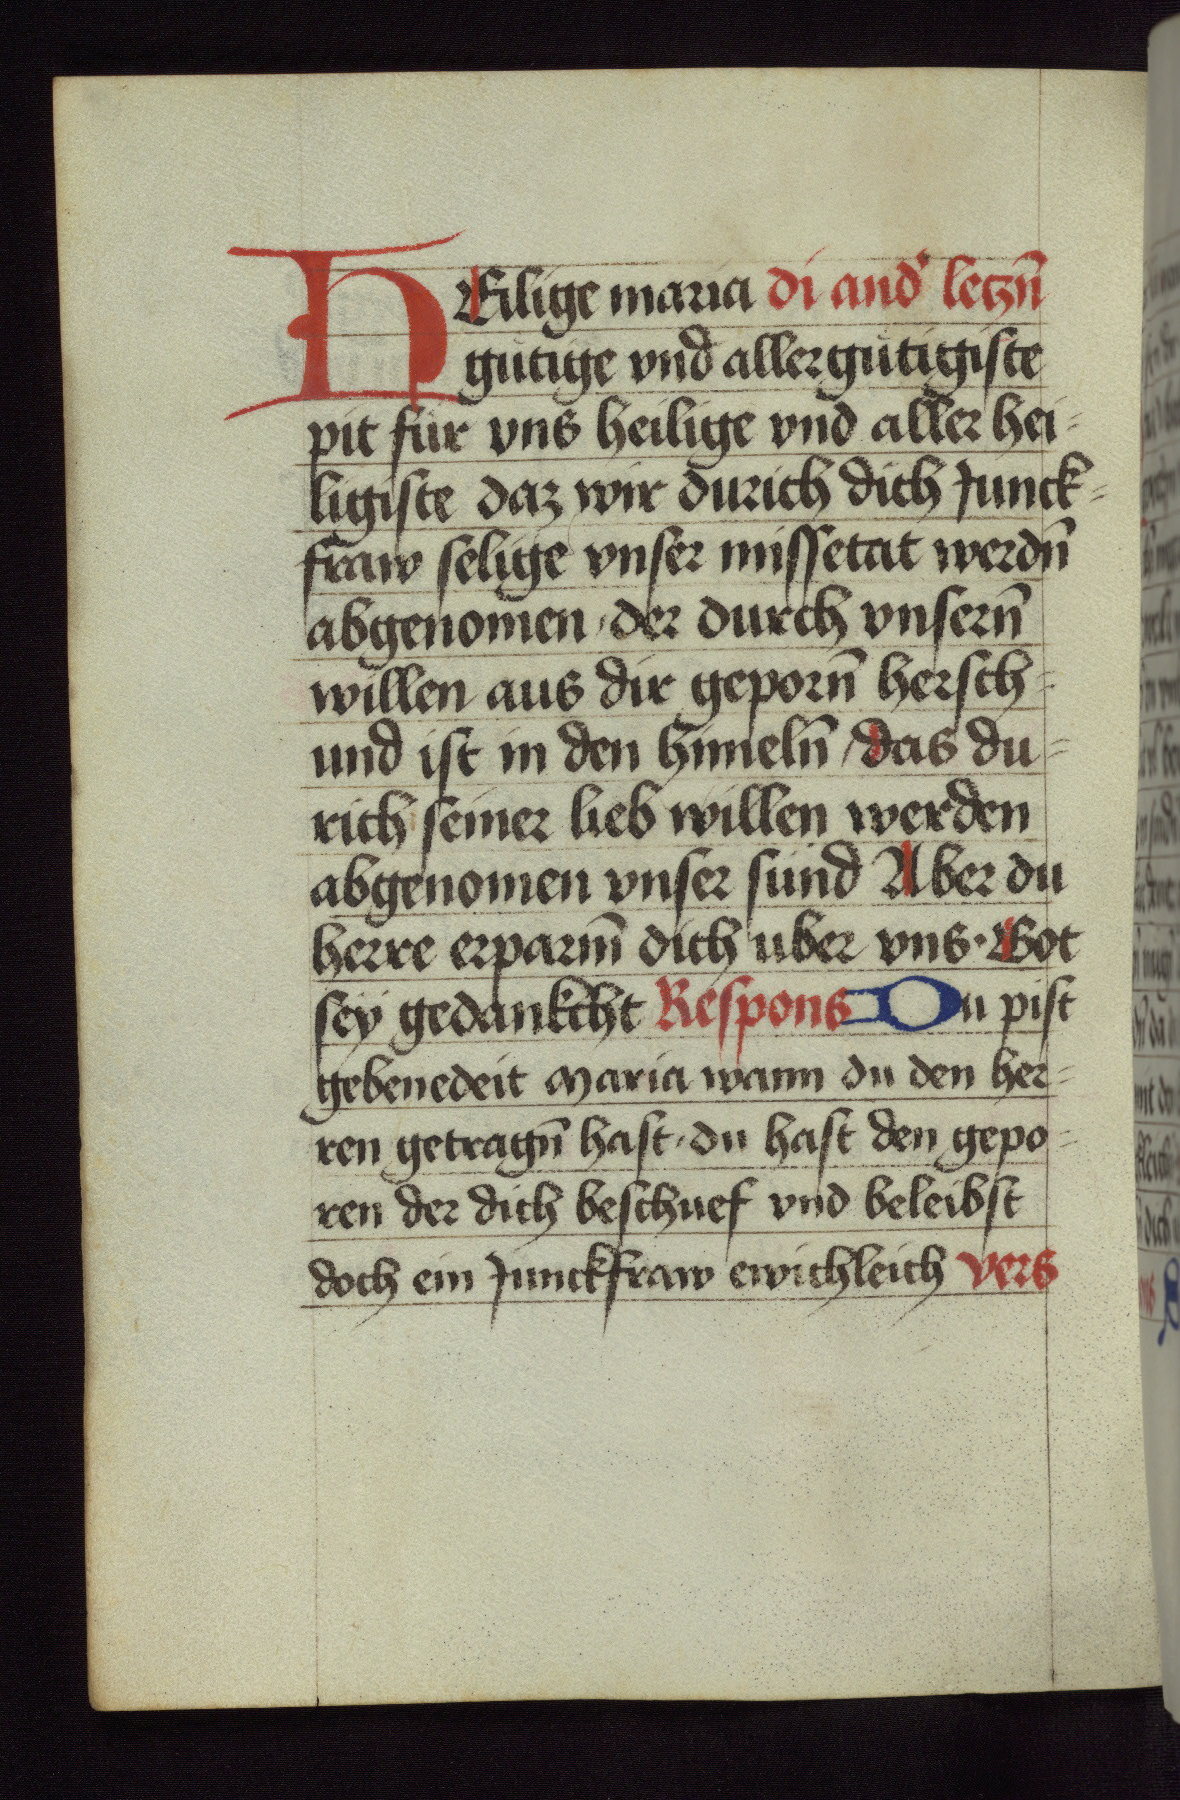 HEilige maria di and' letzn̄
gütige vnd allergütigiste
pit für vns heilige vnd aller hei-
ligiste daz wir durich dich Junck-
fraw selige vnser missetat werdn̄
abgenomen · der durch vnsern̄
willen aus dir geporn̄ hersch-
und ist in den himeln̄ / das du-
rich seiner lieb willen werden
abgenomen vnser sünd Aber du
herre erparm̄ dich uber vns · Got
sey gedankcht Respons Du pist
gebenedeit maria wann du den her-
ren getragn̄ hast · du hast den gepo-
ren der dich beschuef vnd beleibst
doch ein Junckfraw ewichleich vers